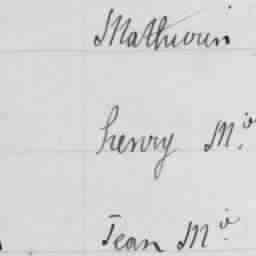 Mathurin
henry M.ie
Jean M.ie